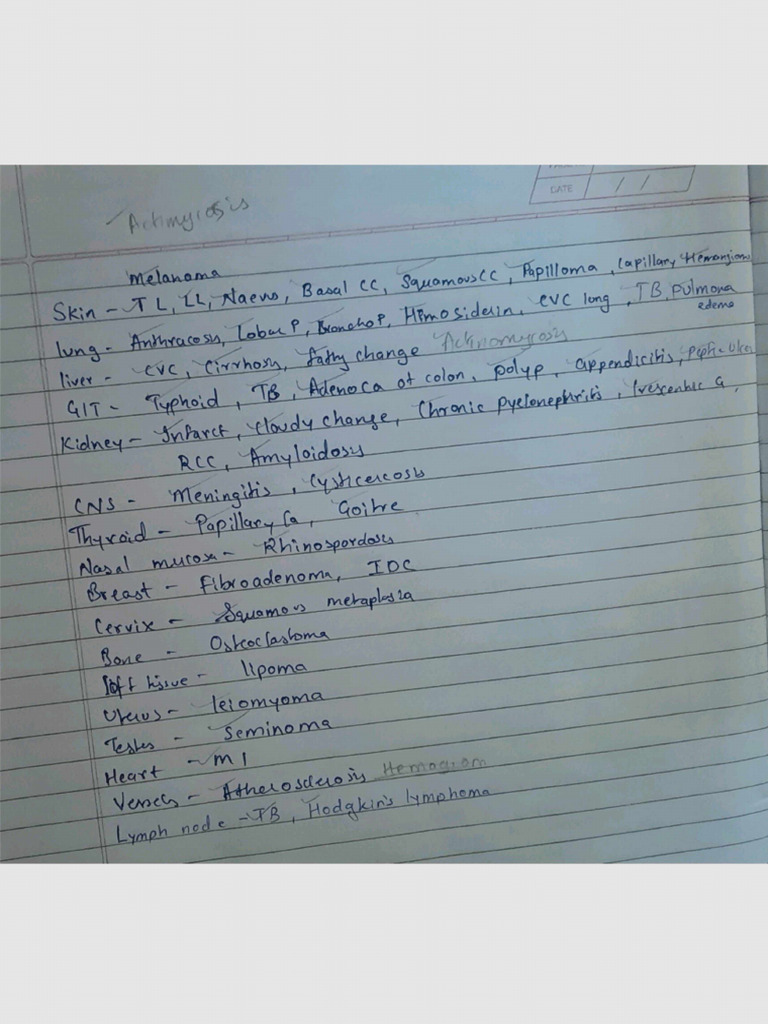 DATE / /
Actimycosis
Melanoma
Skin - TL, LL, Naevus, Basal CC, Squamous CC, Papilloma, Capillary Hemangioma
lung - Anthracosis, Lobar P, Broncho P, Hemosiderin, CVC lung, TB, Pulmona
edema
liver - CVC, Cirrhosis, fatty change Actinomycosis
GIT - Typhoid, TB, Adenoca of colon, polyp, appendicitis, peptic ulcer
Kidney - Infarct, cloudy change, Chronic pyelonephritis, Crescentic G,
RCC, Amyloidosis
CNS - Meningitis, Cysticercosis
Thyroid - Papillary Ca, Goitre
Nasal mucosa - Rhinosporidosis
Breast - Fibroadenoma, IDC
Cervix - Squamous metaplasia
Bone - Osteoclastoma
Soft tissue - lipoma
Uterus - leiomyoma
Testes - Seminoma
Heart - MI
Vessels - Atherosclerosis Hemogram
Lymph node - TB, Hodgkin's lymphoma